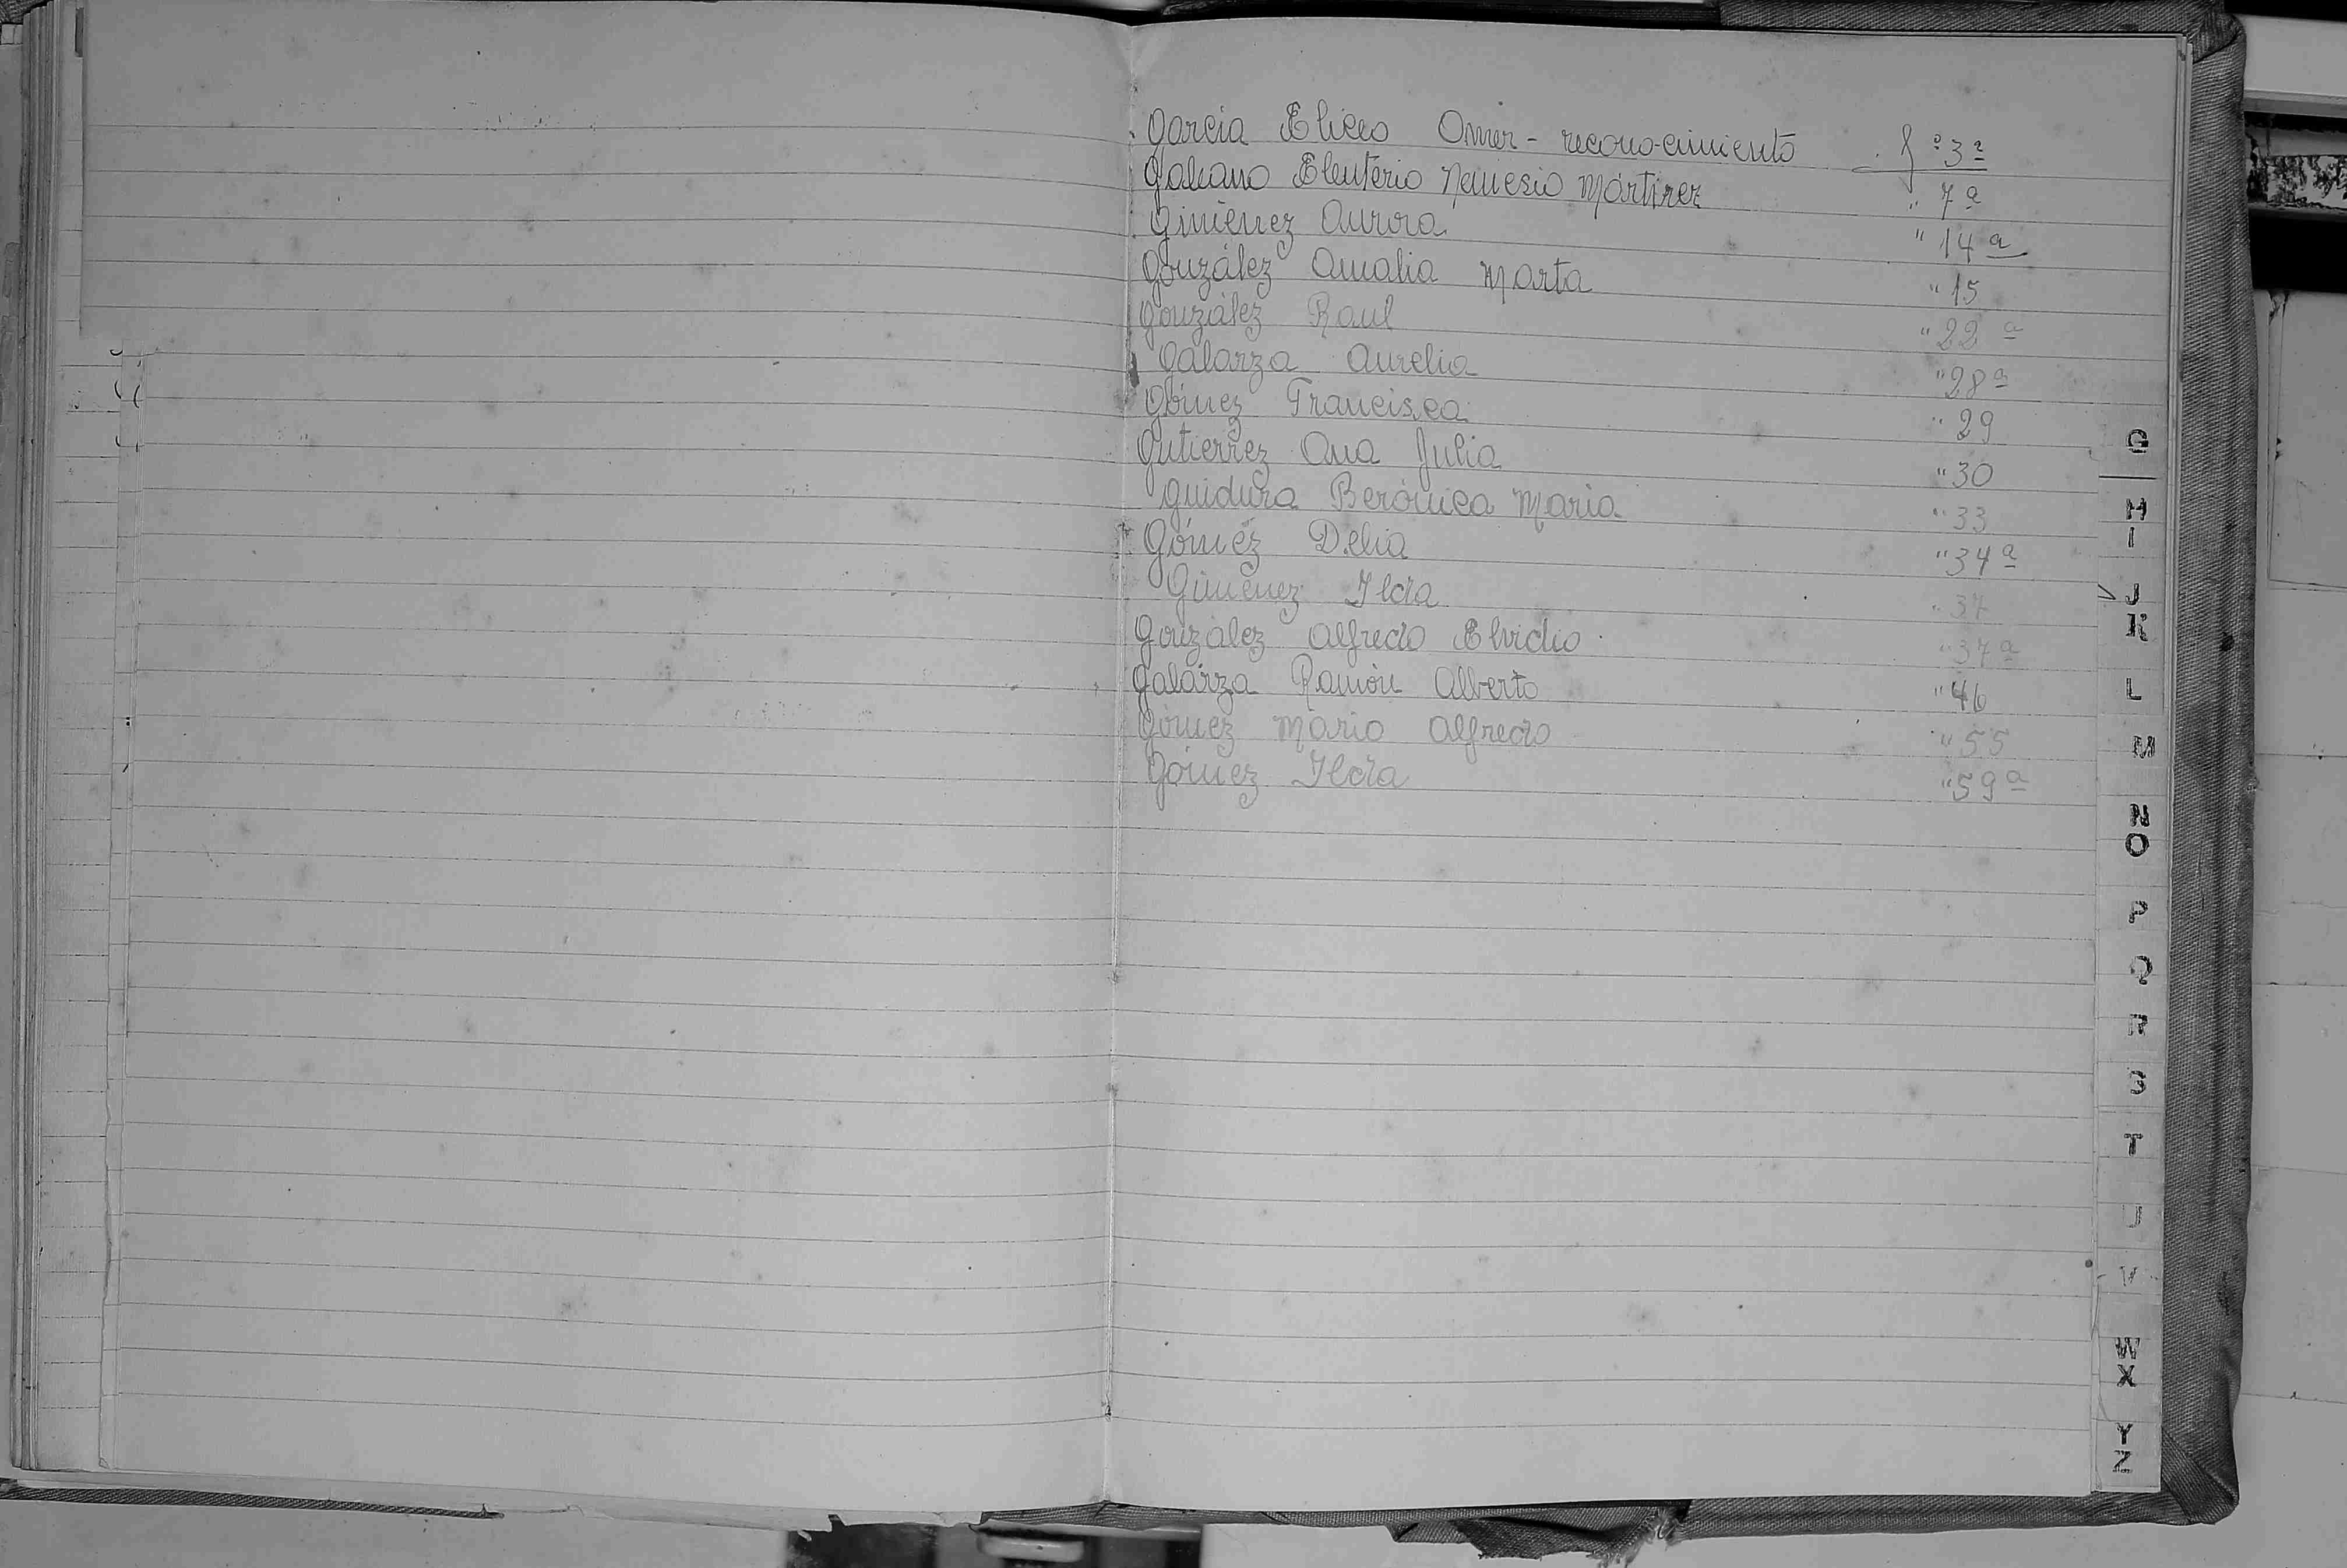 Garcia Eliceo Omer - reconocimiento f º 3ª
Galeano Eleuterio Nemesio Mártirez " 7ª
Giménez Aurora " 14ª
González Amalia Marta " 15
González Raul " 22ª
Galarza Aurelia " 28ª
Gómez Francisca " 29
Gutierrez Ana Julia " 30
Guidura Berónica Maria " 33
Gómez Delia " 34ª
Giménez Ilda " 37
González Alfredo Elvidio " 37ª
Galarza Ramón Alberto " 46
Gómez Mario Alfredo " 55
Gómez Ilda " 59ª
G
H
I
J
K
L
M
N
O
P
Q
R
S
T
U
V
W
X
Y
Z